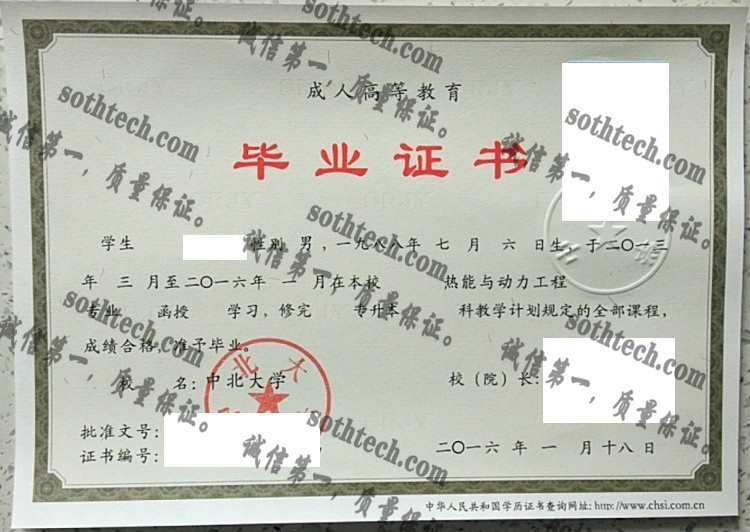 成人高等教育
毕业证书
学生 性别 男,一九八八年 七 月 六 日生,于二〇一三
年 三 月至二〇一六年 一 月在本校 热能与动力工程
专业 函授 学习,修完 专升本 科教学计划规定的全部课程,
成绩合格,准予毕业。
校 名:中北大学
校(院)长:
批准文号:
证书编号:
二〇一六 年 一 月 十八 日
中华人民共和国学历证书查询网址: http://www.chsi.com.cn
北大
sothtech.com
诚信第一,质量保证。
sothtech.com
诚信第一,质量保证。
sothtech.com
诚信第一,质量保证。
sothtech.com
诚信第一,质量保证。
sothtech.com
诚信第一,质量保证。
sothtech.com
诚信第一,质量保证。
sothtech.com
诚信第一,质量保证。